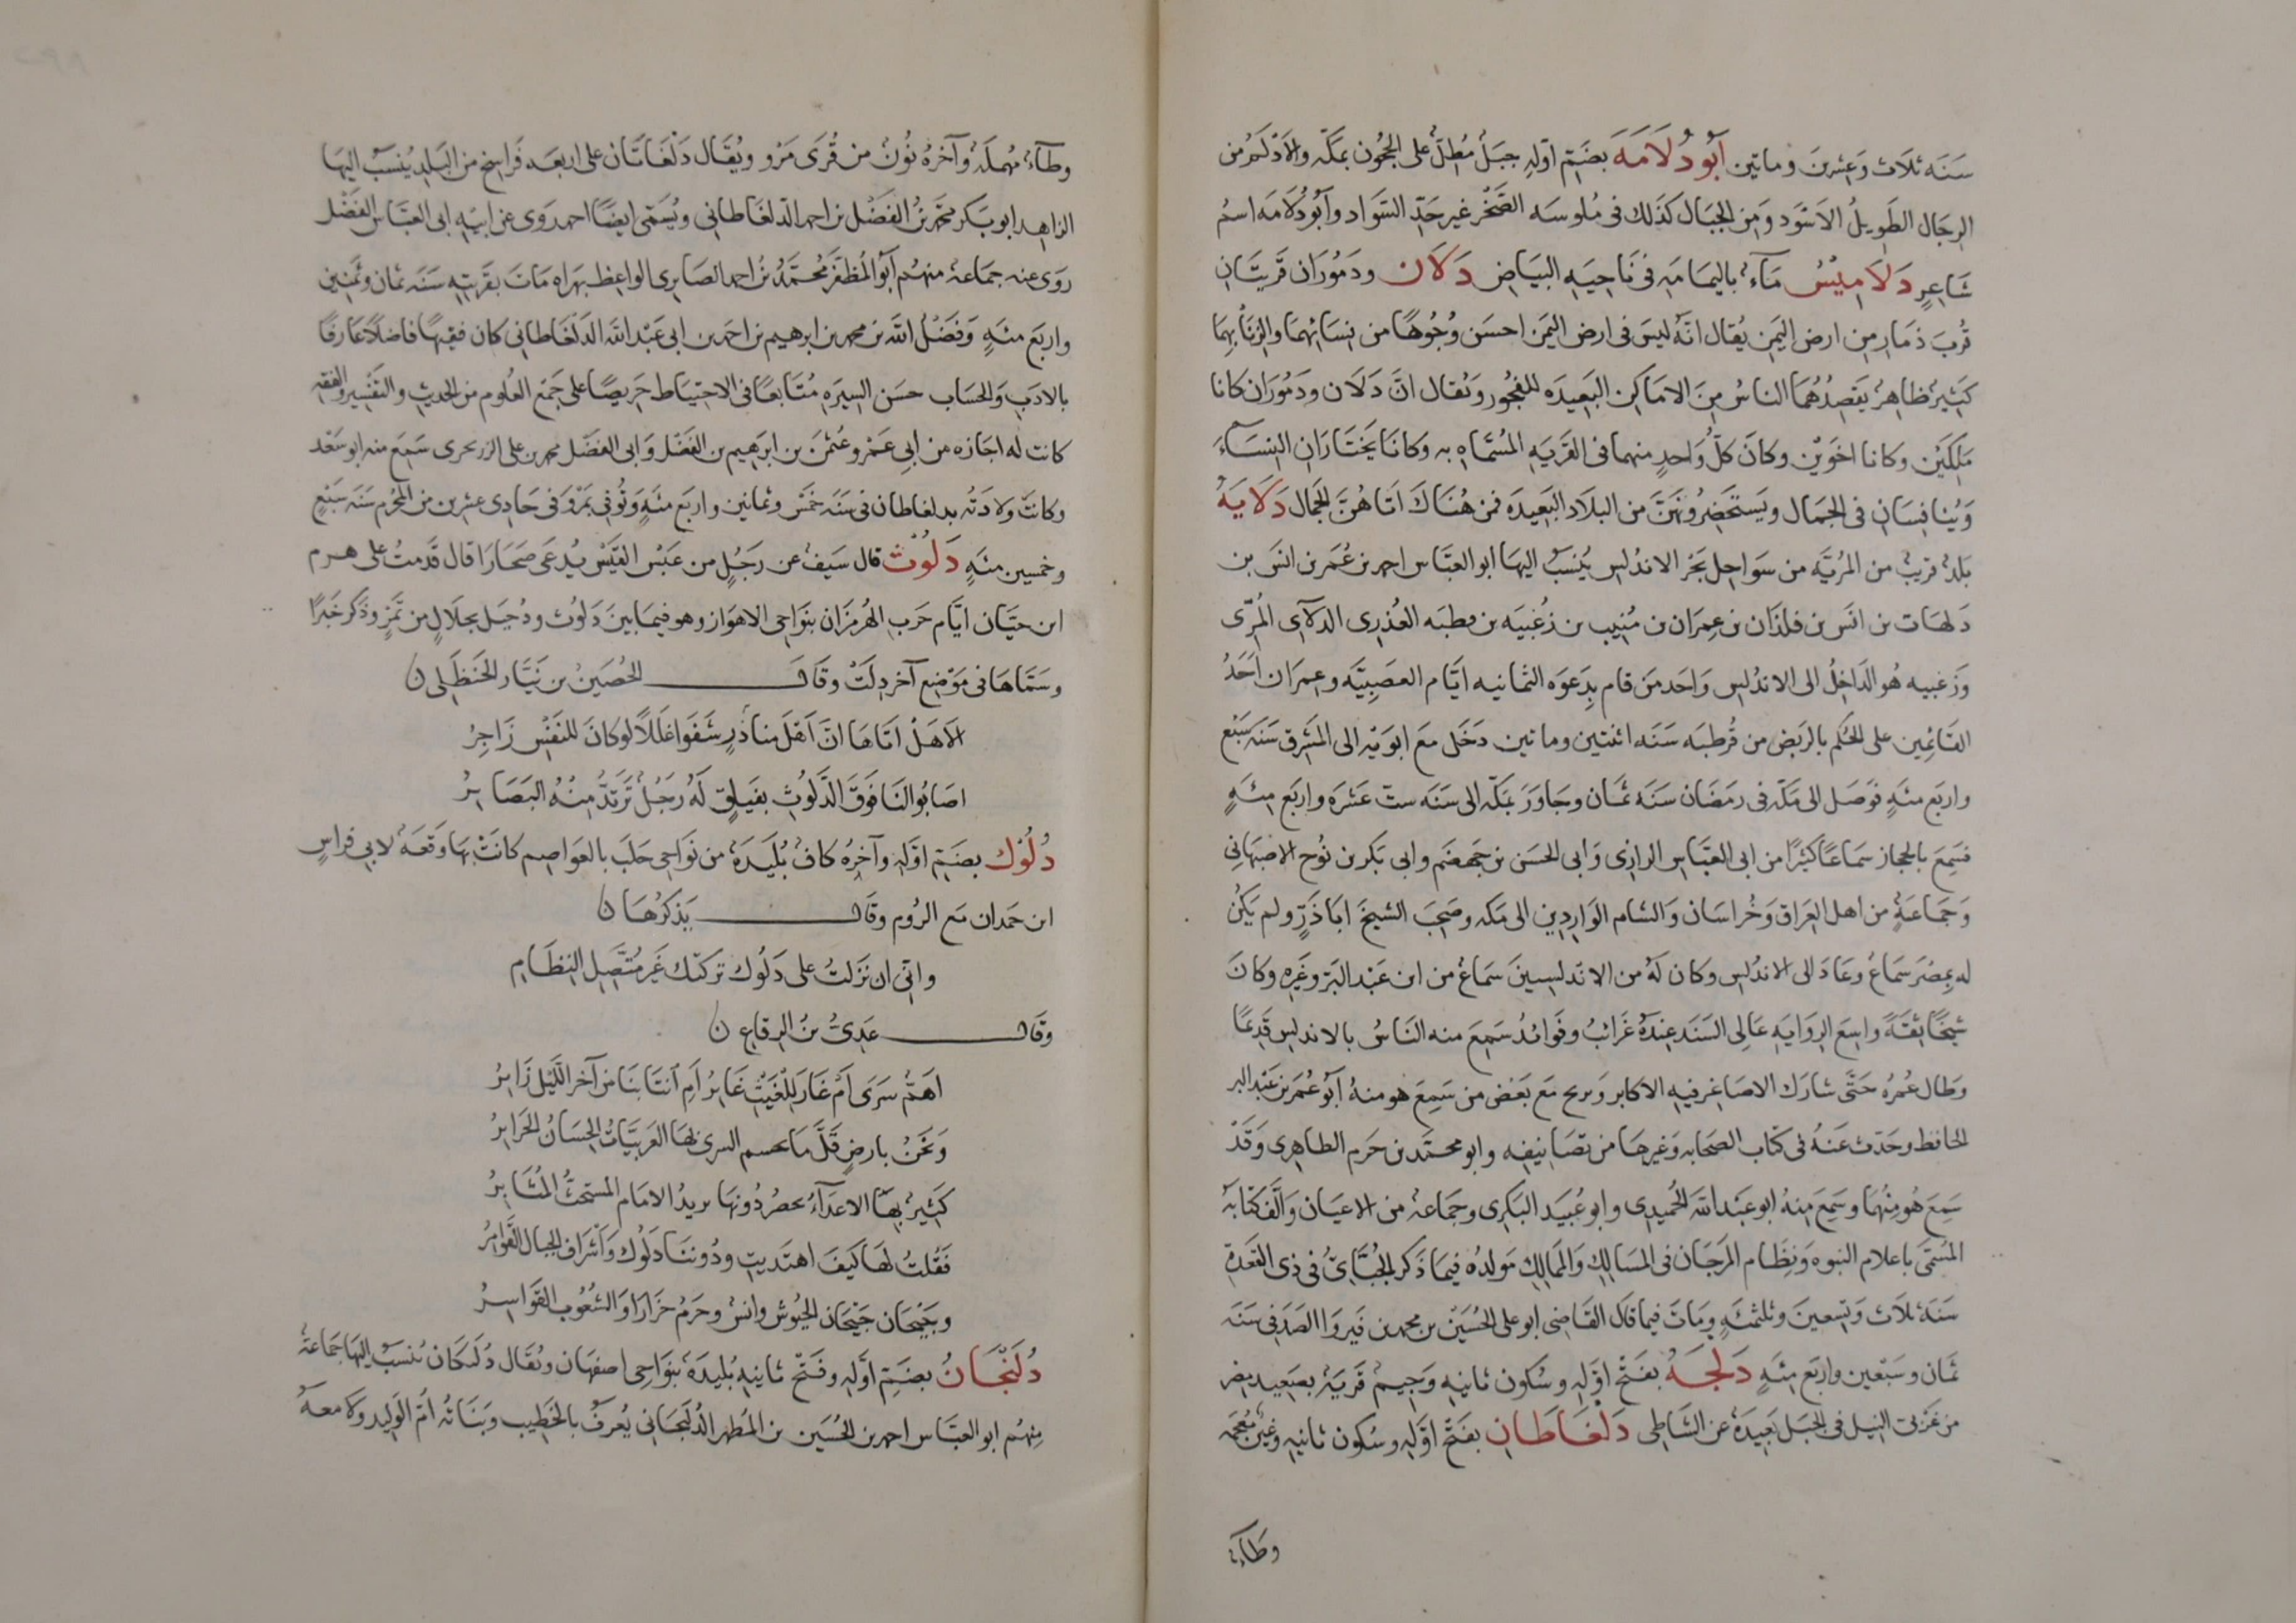 سَنَه ثلَاث وَعِشرينَ وماتين أبُو دُلَامَهَ بضَمّ اوّلهِ جبَلُ مُطِلّ على الحجُون بمَكّه والادْلَمُ من
الرِجَال الطَوِيلُ الاسْوَد وَمِن الجبَال كذَلك فى مُلوسَه الصَّخْر غير حَدّ السَّواد وأبُو دُلَامَه اسمُ
شَاعِرٍ دَلَامِيْسُ مَآءُ باليمَامَهِ فى نَاحِيَهِ البيَاض دَلَان ودَمُورَان قَريتَانِ
قُربَ ذمَارِ مِن ارض اليَمن يُقال انّهُ ليسَ فى ارض اليَمن احسَن وُجُوهًا من نِسَائهمَا والزِنَأُ بِهِمَا
كَثِيرُ ظَاهِرُ يَقصِدُهُمَا الناسُ مِنَ الامَاكِن البَعِيدَه للفجُور ويُقال انَّ دَلَان ودَمُورَان كانا
مَلِكَيْن وكانا اخوَيْن وكانَ كلّ وَاحِدٍ منهما فى القَريَهِ المُسَمّاهِ به وكانَا يَختَارَانِ النِسَآءَ
وَيُنافِسَانِ فى الجمَال ويَستحَضِرُونَهنَّ من البلَاد البَعيدَه فمن هُنَاكَ اتَاهُنَّ الجَمال دَلَايَهُ
بَلَدُ قريبُ من المَرِيَّه من سوَاحِل بحَر الاندُلس يُنسَبُ اليهَا ابو العبَّاس احمد بن عُمَر بن انسَ بن
دَلهَاث بن انَس بن فلذَان بن عِمرَان بن مُنِيب بن زُغَيبَه بن قطبَه العُذرِى الدلآى المُرّى
وَزغيبه هُو الدَاخِلُ الى الاندُلس وَاحَد مَن قام بِدَعوَه اليمانيه ايَّام العصَبِيَّه وعِمرَان احَدُ
القَائِمين على الحكم بالرَبَض من قُرطبَه سَنَه اثنتين وماتين دخَل مَعَ ابوَيْه الى المَشرِق سَنَه سَبْع
واربَع مِئَهٍ فوَصَل الى مَكّه فى رمَضَان سَنَه ثمَان وجَاوَرَ بمَكّه الى سَنَه ستّ عَشَرَه واربَع مِئَهٍ
فسَمِعَ بالحجاز سمَاعًا كثيرًا من ابى العبَّاس الرازِى وَابى الحسَن بن جهضَم وابى بَكر بن نُوح الاصبَهانِى
وَجمَاعَهٍ من اهل العِراق وَخُراسَان وَالشام الوَارِدِين الى مَكه وصَحِبَ الشيخَ ابَا ذَرّ ولم يَكُن
له بمِصْرَ سَماعُ وعَادَ الى الاندُلس وكان لَهُ من الاندلسِيينَ سمَاعُ من ابن عَبْد البَرّ وغَيرِه وكانَ
شيخًا ثقَةً واسِعَ الرِوَايَهِ عَالِى السَنَد عِندَهُ غَرائبُ وفوَائدُ سَمِعَ منه النَاسُ بالاندلس قدِيمًا
وطَال عُمرُه حَتَّى شارَك الاصَاغِر فيه الاكابر وَ مَعَ بَعض من سَمِعَ هو منهُ أبُو عُمَر بن عَبْد البر
الحافظ وحَدّث عَنهُ فى كتَاب الصحَابه وَغيرها من تَصَانِيفه وابو محمَّد بن حَزم الظاهِرى وَقَدْ
سَمِعَ هُو مِنهُمَا وسَمِعَ مِنهُ ابو عَبْد الله الحُميدِى وابو عُبَيد البَكرِى وجمَاعهُ من الاعيَان وَالّفَ كتَابَه
المُسَمّى باعلَام النبوه وَنِظَام المَرجَان فى المَسَالِك وَالممَالِك مَولدُه فيمَا ذَكر الجُبَّائِىّ فى ذى القَعدَهِ
سَنَهَ ثلَاث وَتِسعينَ وثلثمئَهٍ ومَاتَ فيما قال القَاضِى ابو على الحُسَيْن بن محمد بن فيروَا الصَدَفى سَنَه
ثمَان وسَبْعين واربَع مِئَهٍ دَلجَهُ بفَتْح اوّلِه وسُكون ثانيه وَجِيمُ قَريَهُ بصَعِيد مِصر
من غَربى النِيل فى الجبَل بَعِيدَهُ عَن الشَاطِى دَلْغَاطَانِ بفَتح اوّلِه وسُكون ثانيه وغين مُعجمَه
وطآءٌ
وطآءُ مُهملَهُ وآخرُهُ نُونُ من قُرَى مَرْو ويُقَال دَلْغَاتَان على اربعَه فَراسِخ من البَلد يُنسَبُ اليهَا
الزاهِد ابو بَكر محمَّد بنُ الفَضْل بن احمد الدلغَاطانِى ويُسَمّى ايضًا احمد روَى عن ابيْهِ ابى العبَّاس الفَضْل
روَى عنه جمَاعهُ منهُم أبُو المُظفَّر مُحمَّدُ بنُ احمد الصَابِرى الواعِظ بهراه مَاتَ بقَريَتِه سَنَه ثمَان وثمَنِين
واربَع مئَهٍ وَفَضْلُ الله بن محمد بن ابرهيم بن احمَد بن ابى عَبْد الله الدَلغَاطَانِى كان فقيهًا فاضلًا عَارفًا
بالادَب وَالحسَاب حسَن السِيرَه مُتَابعًا فى الاحتيَاط حَرِيصًا على جَمْع العُلوم من الحدِيثِ والتَفْسِير والفقه
كانت له اجَازه من أبِى عَمرو عُثمٰنَ بن ابرَهيم بن الفَضْل وَابى الفضْل محمد بن على الزرنجرى سَمِعَ منه ابو سَعْد
وكانَتْ ولادَتُه بدلغاطان فى سَنَه خَمْس وثمانين واربَع مئَهٍ وَتُوفِى بمَرْو فى حَادِى عشرين من المحَرّم سَنَه سَبْعٍ
وخمسين مئَهٍ دَلُوْث قال سَيفُ عن رَجُلٍ من عَبْس القَيْس يُدعَى صحَارَا قال قَدمتُ على هرم
ابن حيَّان ايَّام حَرب الهُرمُزَان بنَوَاحى الاهوَاز وهو فيمَا بينَ دَلوُث ودُجيَل بجلالٍ من تَمرٍ وذكر خَبرًا
وسَمّاهَا فى مَوْضِع آخر دِلَث وقَال الحُصَيْنُ بن نيَّار الحَنظَلِى ن
الَا هَلْ اتَاهَا انّ اهْلَ منَاذِرٍ شَفَوا غَلَلًا لو كانَ للنَفْسِ زَاجِرُ
اصَابُوا لنَا فَوقَ الدَّلُوثِ بفَيلِقٍ لَهُ زَجَلُ تَرتَدُّ مِنهُ البَصَايِرُ
دُلُوْك بضَمّ اوّلهِ وآخِرُه كافُ بُليدَهُ من نوَاحِى حلَب بالعوَاصِم كانَتْ بهَا وَقعَهُ لابى فراسِ
ابن حَمدان مَعَ الرُوم وقال يَذكُرُهَا ن
وانِى ان نزَلتُ على دَلُوك تركتك غَيرَ مُتَّصِل النِظَامِ
وقَال عَدِىُّ بنُ الرقاع ن
اهَمُّ سَرَى أمْ غَارَ لِلغَيْثِ غَايرُ أمِ انتَابنَا من آخر اللَيْل زَايرُ
وَنحَنُ بارضٍ قَلَّ مَا السرى بهَا العَربِيَّاتُ الحِسَانُ الحَرَايرُ
كَثِيرُ بهَا الاعدَآءُ دُونهَا بريدُ الامَام المستحثُّ المُثَابرُ
فَقُلتُ لهَا كَيفَ اهتَديتِ ودُوننَا دَلُوك وَاشْرَاف الجبال القَوَاهِرُ
وجَيْحَان جَيْحَان الجيُوش وانسُ وحَزمُ خزَازَا وَالشُعُوب القَوَاسِرُ
دُلَنْجَانُ بضَمّ اوّله وفَتحْ ثانيه بُليدَهُ بنوَاحِى اصفهَان ويُقَال دُلَكان يُنسَبُ اليهَا جمَاعهُ
منهُم ابو العبَّاس احمد بن الحُسَين بن المُطهر الدُلَنجَانى يُعرفُ بالخَطِيب وَبنَاتُه امُّ الوَلِيد ولامعَهُ